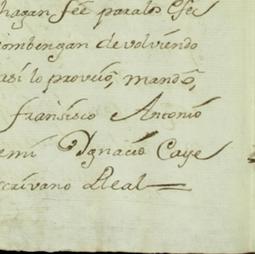 hagan feè para los efec
combengan devolviendo
asi lo proveiò, mandò,
fransisco Antonio
emi Ygnacio Caye
scrivano Rleal